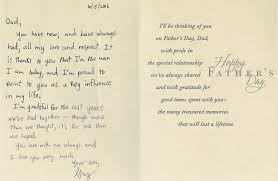 Dad,
You have now, and have always
had, all my love and respect. It
is thanks to you that I'm the man
I am today, and I'm proud to
point to you as a key influence
in my life.
I'm grateful for the last years
we've had together — though more
than we thought, it's far less than
we hoped.
You are with me always and
I love you very much.
Your son,
I'll be thinking of you
on Father's Day, Dad,
with pride in
the special relationship
we've always shared
and with gratitude for
good times spent with you–
the many treasured memories
that will last a lifetime.
Happy
FATHER'S
Day